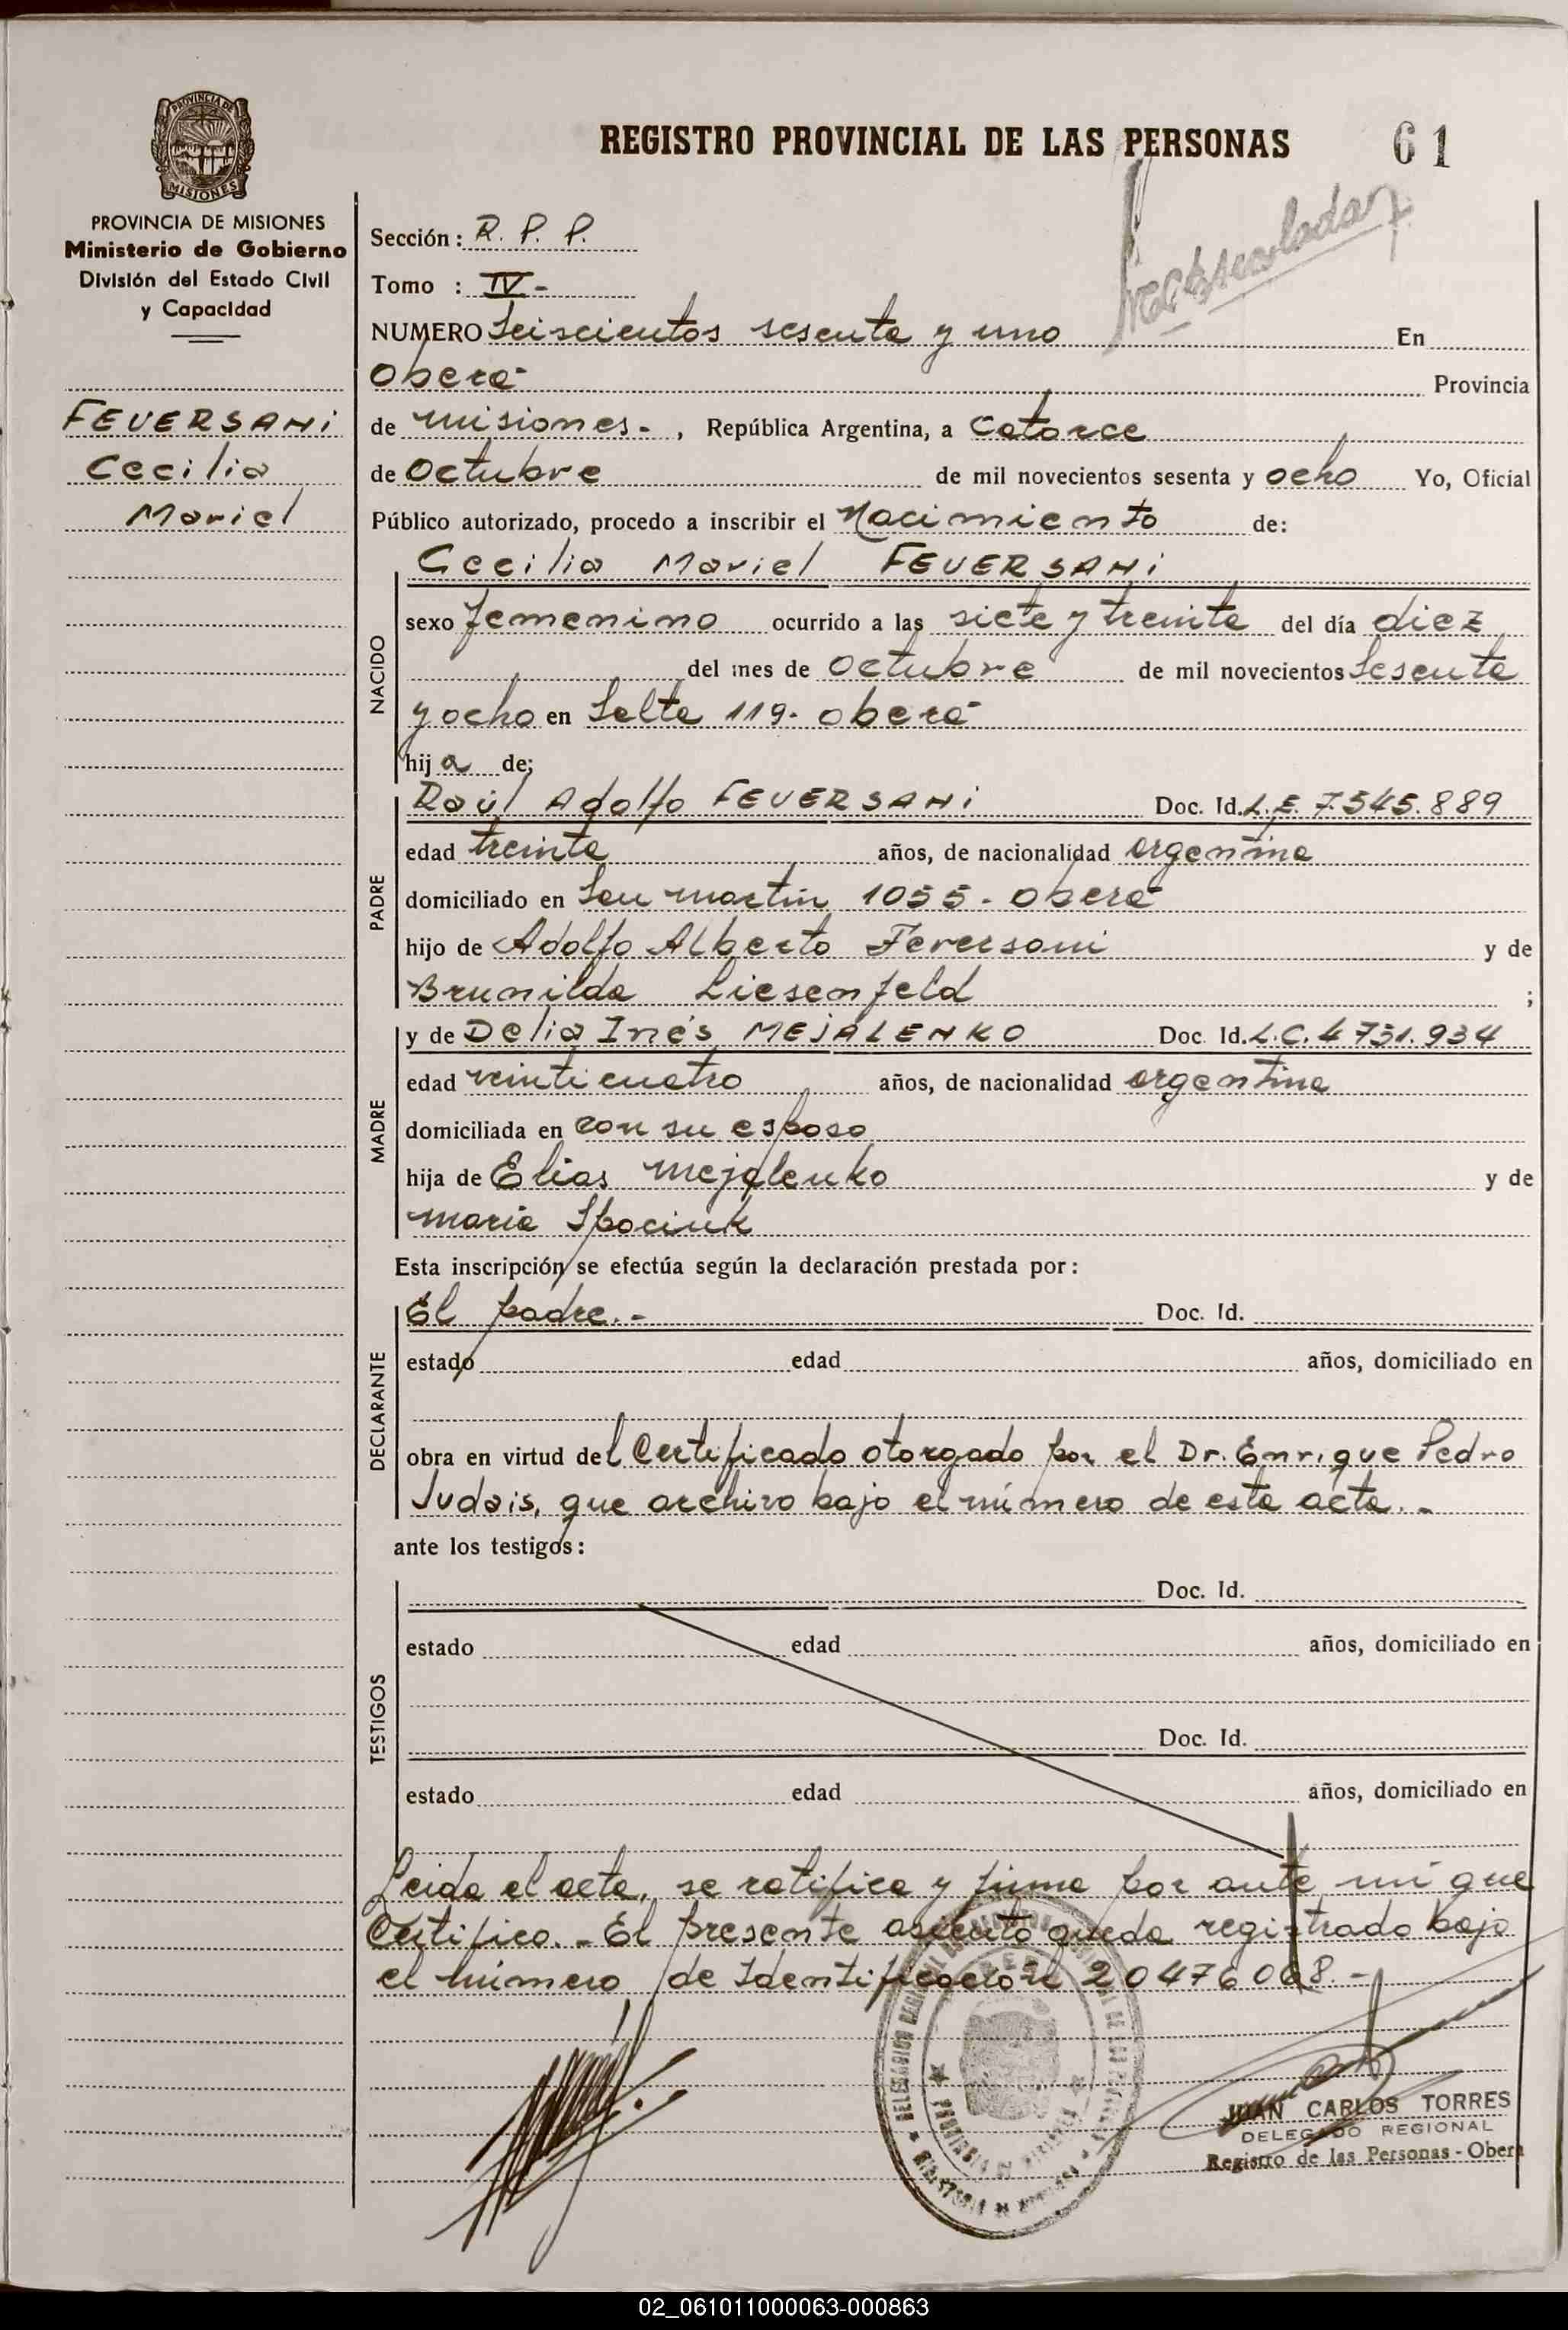 REGISTRO PROVINCIAL DE LAS PERSONAS 61
PROVINCIA DE
MISIONES
PROVINCIA DE MISIONES
Ministerio de Gobierno
División del Estado Civil
y Capacidad
FEVERSANI
Cecilia
Mariel
Sección: R. P. P.
Tomo : IV-
NUMERO Seiscientos sesenta y uno En
Oberá- Provincia
de misiones-, República Argentina, a Catorce
de Octubre de mil novecientos sesenta y ocho Yo, Oficial
Público autorizado, procedo a inscribir el Nacimiento de:
NACIDO
Cecilia Mariel FEVERSANI
sexo femenino ocurrido a las siete y treinta del día diez
del mes de Octubre de mil novecientos Sesenta
y ocho en Salta 119- Oberá-
hij a de;
PADRE
Raúl Adolfo FEVERSANI Doc. Id. L.E. 7.545.889
edad treinta años, de nacionalidad argentina
domiciliado en San martín 1055- Oberá-
hijo de Adolfo Alberto Feversani y de
Brunilda Liesenfeld ;
MADRE
y de Delia Inés MEJALENKO Doc. Id. L.C. 4731.934
edad veinticuatro años, de nacionalidad argentina
domiciliada en con su esposo
hija de Elias Mejalenko y de
maría Spaciuk
Esta inscripción se efectúa según la declaración prestada por:
DECLARANTE
El padre.- Doc. Id.
estado edad años, domiciliado en
obra en virtud del Certificado otorgado por el Dr. Enrique Pedro
Judais, que archivo bajo el número de esta acta.-
ante los testigos:
TESTIGOS
Doc. Id.
estado edad años, domiciliado en
Doc. Id.
estado edad años, domiciliado en
Leida el acta, se ratifica y firma por ante mí que
Certifico.- El presente asiento queda registrado bajo
el número de Identificación 20476068.-
JUAN CARLOS TORRES
DELEGADO REGIONAL
Registro de las Personas - Oberá
02_061011000063-000863